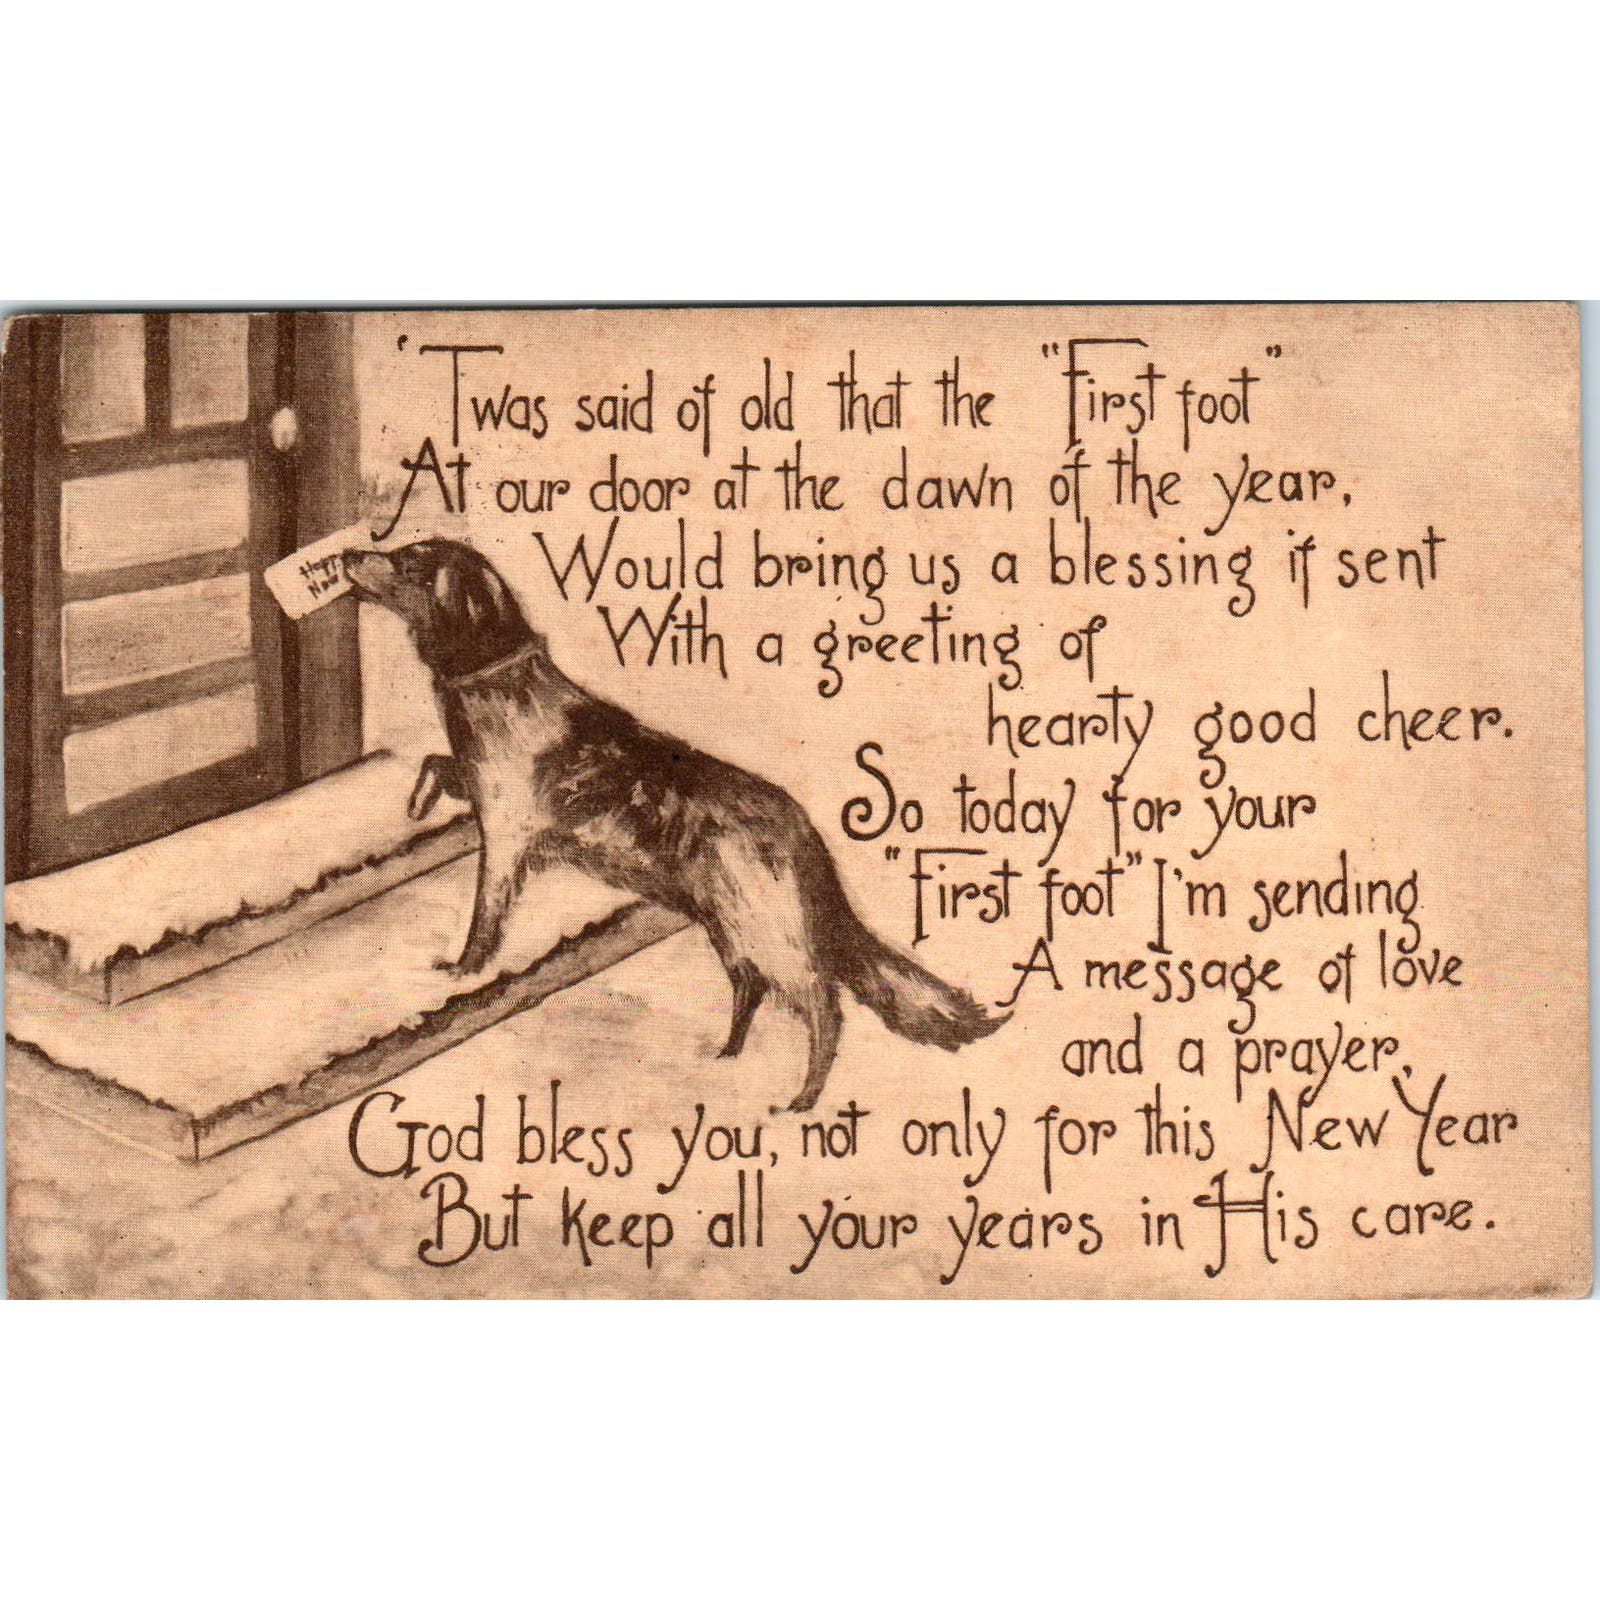 'Twas said of old that the "First foot"
At our door at the dawn of the year,
Would bring us a blessing if sent
With a greeting of
hearty good cheer.
So today for your
"First foot" I'm sending
A message of love
and a prayer,
God bless you, not only for this New Year
But keep all your years in His care.
Happ
New